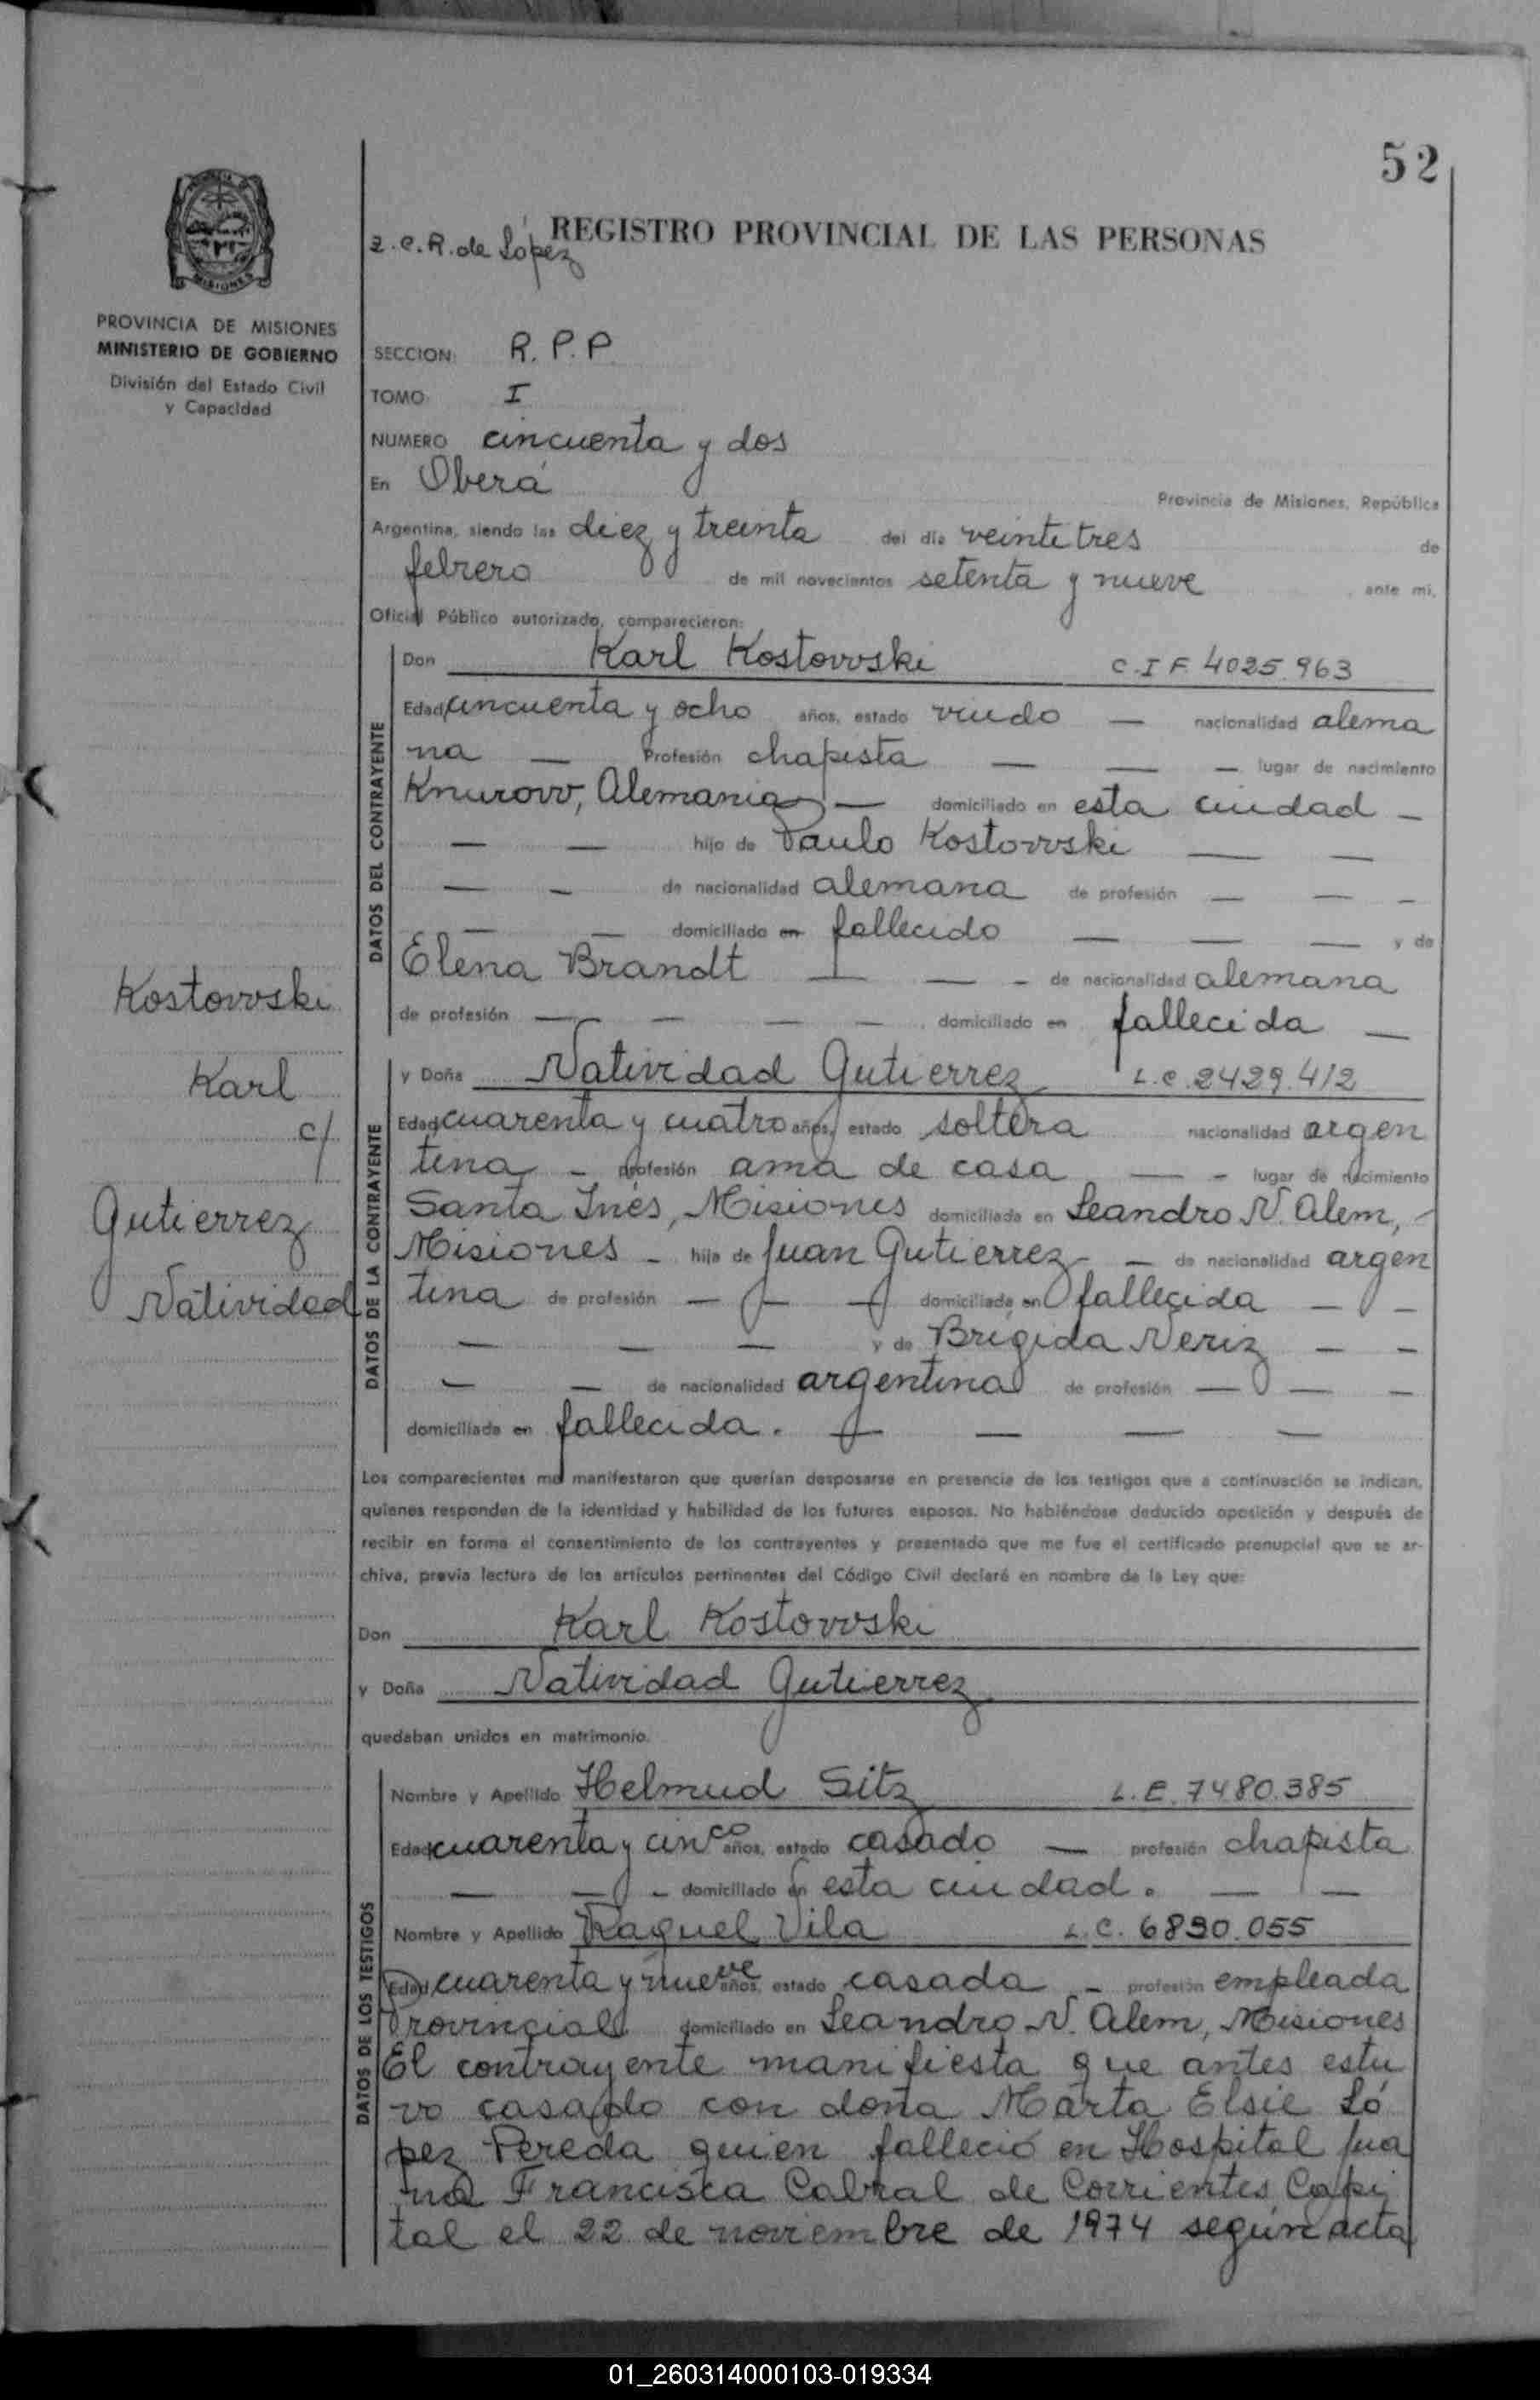 52
REGISTRO PROVINCIAL DE LAS PERSONAS
z.C.R. de López
MISIONES
PROVINCIA DE MISIONES
MINISTERIO DE GOBIERNO
División del Estado Civil
y Capacidad
SECCION: R.P.P
TOMO: I
NUMERO cincuenta y dos
En Oberá Provincia de Misiones, República
Argentina, siendo las diez y treinta del día veintitres de
febrero de mil novecientos setenta y nueve, ante mi,
Oficial Público autorizado, comparecieron:
DATOS DEL CONTRAYENTE
Don Karl Kostowski C.I.F. 4025.963
Edad cincuenta y ocho años, estado viudo — nacionalidad alema
na — Profesión chapista — — — lugar de nacimiento
Knurow, Alemania — domiciliado en esta ciudad —
— — hijo de Paulo Kostowski — —
— — de nacionalidad alemana de profesión — — —
— — domiciliado en fallecido — — — y de
Elena Brandt — — — de nacionalidad alemana
de profesión — — — — domiciliado en fallecida —
Kostowski
Karl
c/
Gutierrez
Natividad
DATOS DE LA CONTRAYENTE
y Doña Natividad Gutierrez L.C. 2429.412
Edad cuarenta y cuatro años, estado soltera nacionalidad argen
tina — profesión ama de casa — — lugar de nacimiento
Santa Inés, Misiones domiciliada en Leandro N. Alem, —
Misiones — hija de Juan Gutierrez — de nacionalidad argen
tina de profesión — — — domiciliada en fallecida — —
— — — y de Brigida Neriz — —
— — de nacionalidad argentina de profesión — — —
domiciliada en fallecida. — — — —
Los comparecientes me manifestaron que querían desposarse en presencia de los testigos que a continuación se indican,
quienes responden de la identidad y habilidad de los futuros esposos. No habiéndose deducido oposición y después de
recibir en forma el consentimiento de los contrayentes y presentado que me fue el certificado prenupcial que se ar-
chiva, previa lectura de los artículos pertinentes del Código Civil declaré en nombre de la Ley que:
Don Karl Kostowski
y Doña Natividad Gutierrez
quedaban unidos en matrimonio.
DATOS DE LOS TESTIGOS
Nombre y Apellido Helmud Sitz L.E. 7480.385
Edad cuarenta y cinco años, estado casado — profesión chapista
— — — domiciliado en esta ciudad. — —
Nombre y Apellido Raquel Vila L.C. 6890.055
Edad cuarenta y nueve años, estado casada — profesión empleada
Provincial domiciliado en Leandro N. Alem, Misiones
El contrayente manifiesta que antes estu
vo casado con doña Marta Elsie Ló
pez Pereda quien falleció en Hospital Jua
na Francisca Cabral de Corrientes, Capi
tal el 22 de noviembre de 1974 según acta
01_260314000103-019334